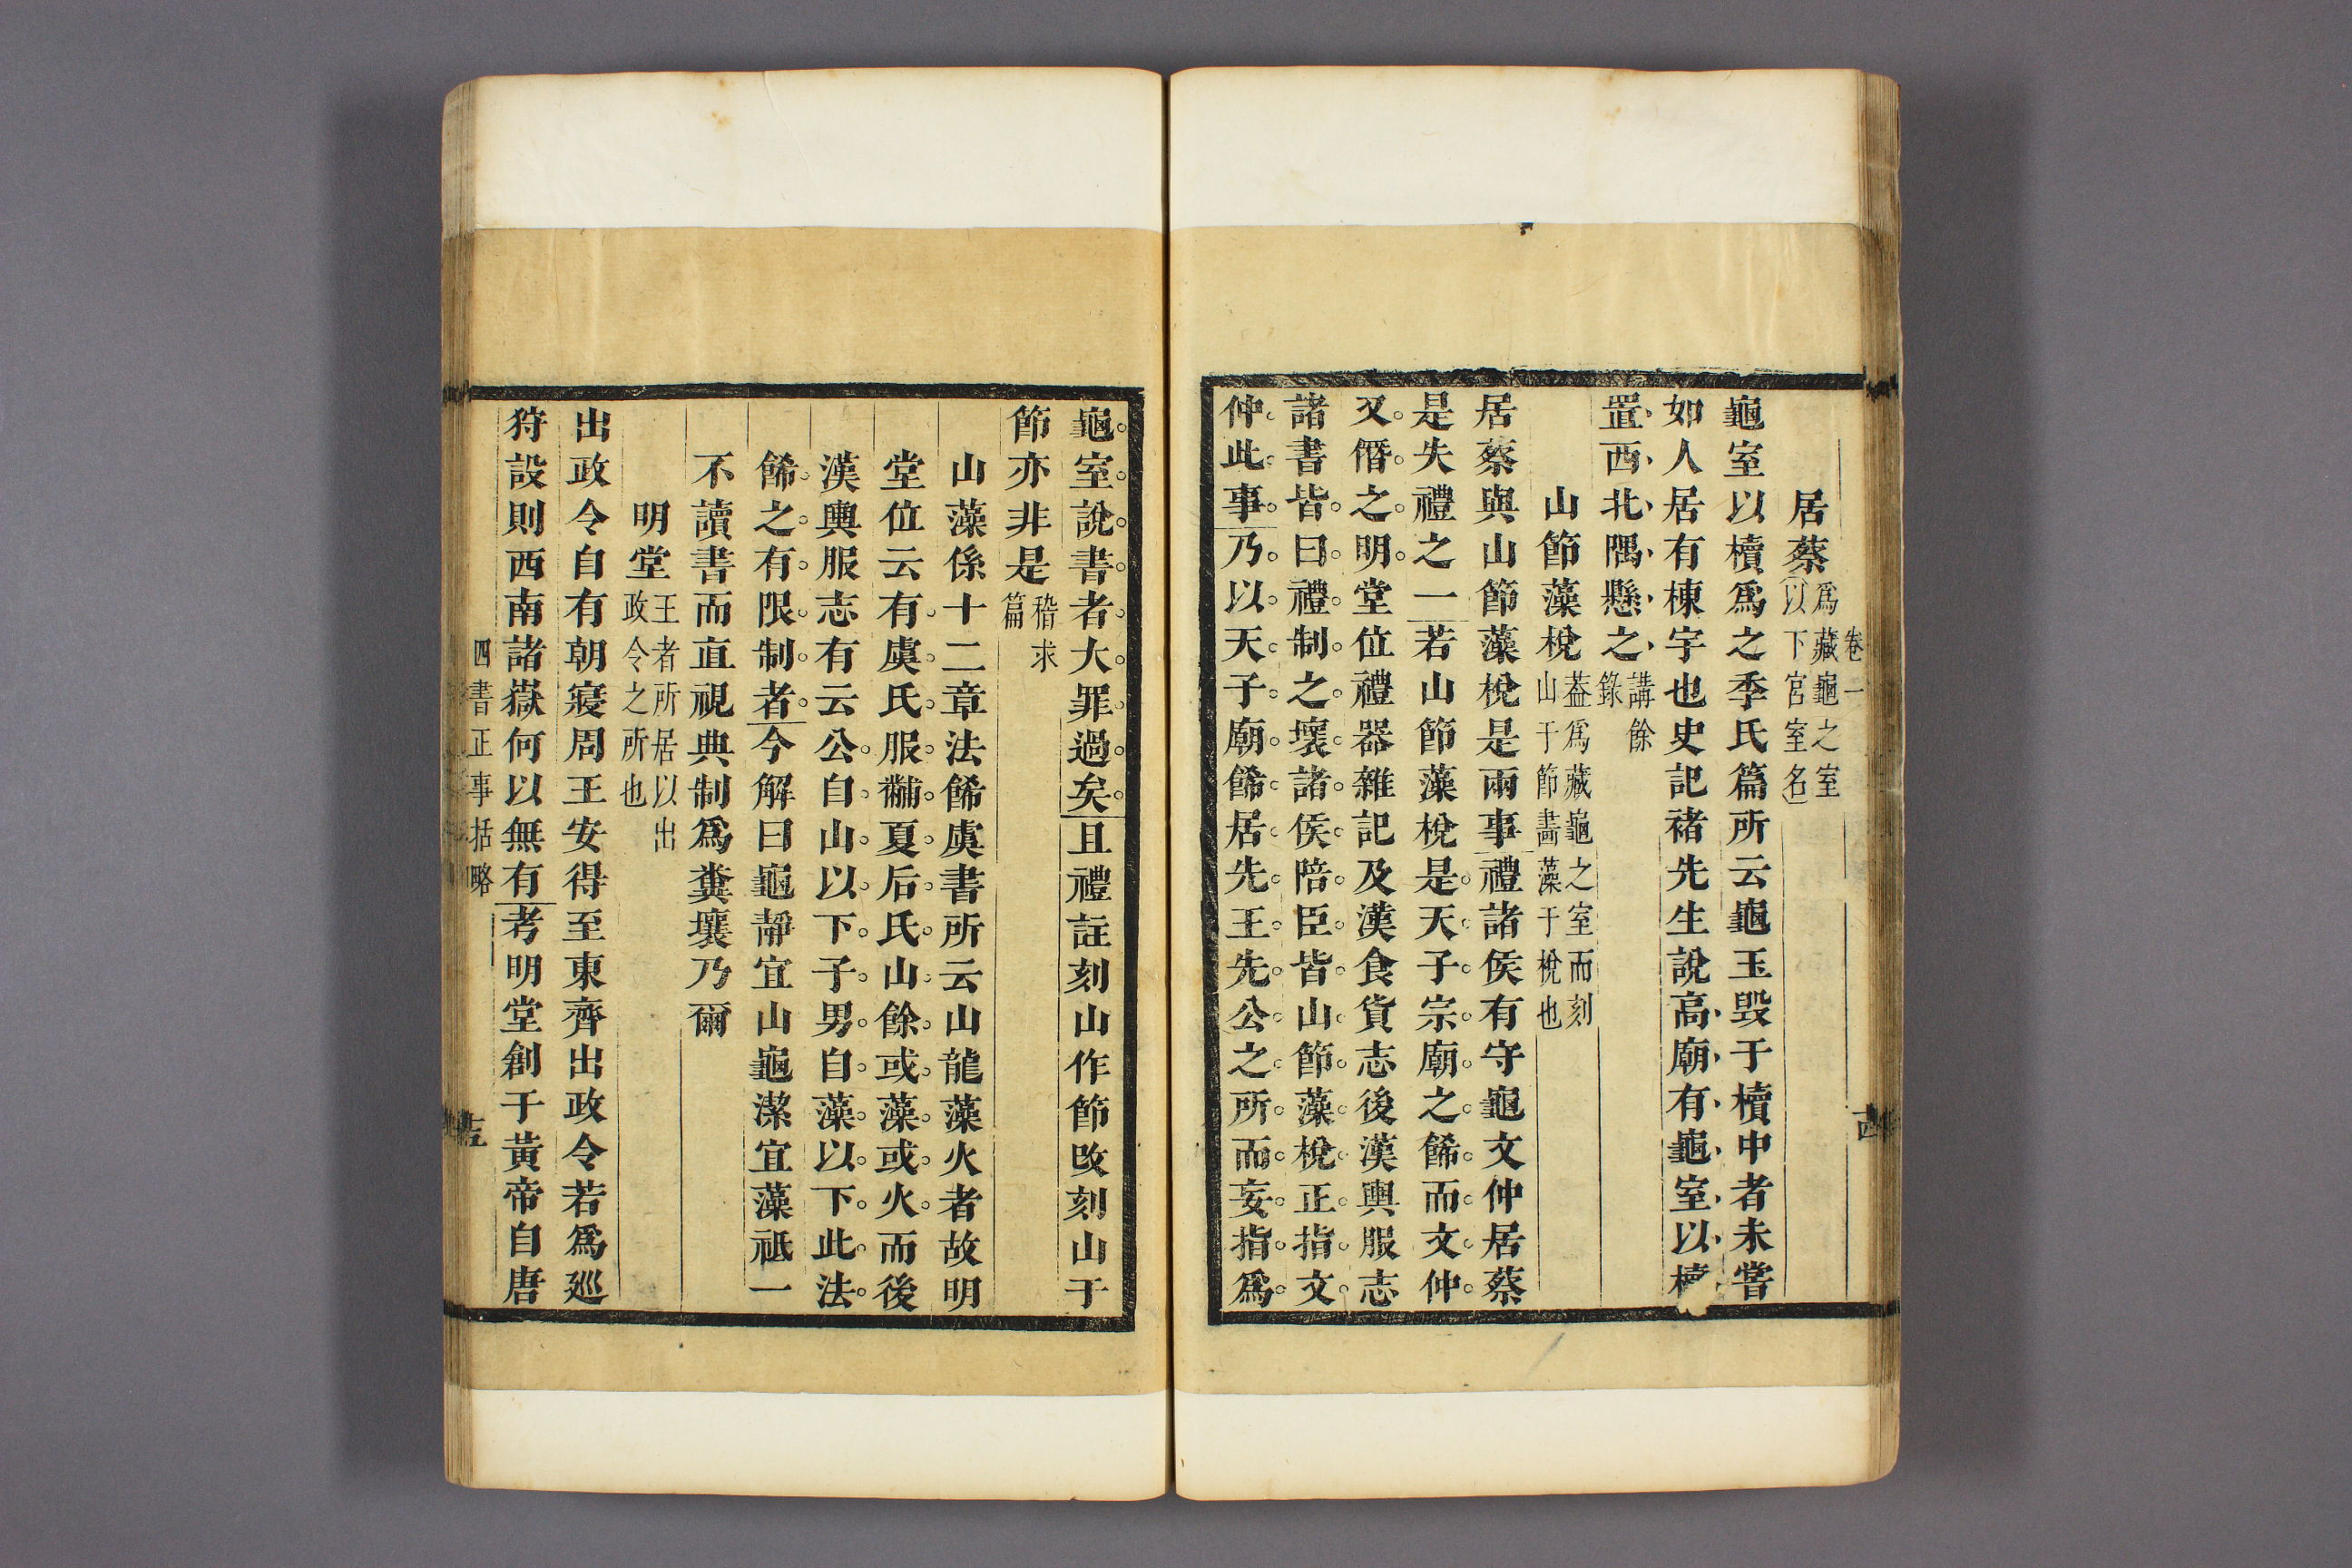 卷一
居蔡爲藏龜之室以下宮室名
龜室以櫝爲之季氏篇所云龜玉毀于櫝中者未嘗
如人居有棟宇也史記褚先生說高廟有龜室以櫝
置西北隅懸之講餘錄
山節藻梲葢爲藏龜之室而刻山于節畵藻于梲也
居蔡與山節藻梲是兩事禮諸侯有守龜文仲居蔡
是失禮之一若山節藻梲是天子宗廟之餙而文仲
又僭之明堂位禮器雜記及漢食貨志後漢輿服志
諸書皆曰禮制之壞諸侯陪臣皆山節藻梲正指文
仲此事乃以天子廟餙居先王先公之所而妄指爲
十四
龜室說書者大罪過矣且禮註刻山作節改刻山于
節亦非是稽求篇
山藻係十二章法餙虞書所云山龍藻火者故明
堂位云有虞氏服黻夏后氏山餘或藻或火而後
漢輿服志有云公自山以下子男自藻以下此法
餙之有限制者今解曰龜靜宜山龜潔宜藻祗一
不讀書而直視典制爲糞壤乃爾
明堂王者所居以出政令之所也
出政令自有朝寢周王安得至東齊出政令若爲廵
狩設則西南諸嶽何以無有考明堂創于黃帝自唐
四書正事括略
十五